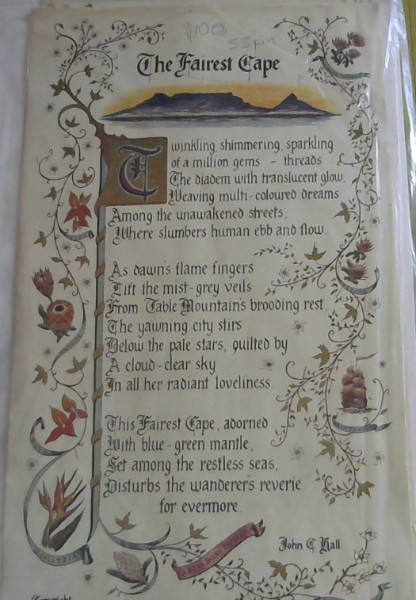 The Fairest Cape
Twinkling, shimmering, sparkling
of a million gems - threads
The diadem with translucent glow,
Weaving multi-coloured dreams
Among the unawakened streets,
Where slumbers human ebb and flow.
As dawn's flame fingers
Lift the mist-grey veils
From Table Mountain's brooding rest
The yawning city stirs
Below the pale stars, quilted by
A cloud-clear sky
In all her radiant loveliness
This Fairest Cape, adorned
With blue-green mantle,
Set among the restless seas,
Disturbs the wanderer's reverie
for evermore.
John C Hall
Copyright